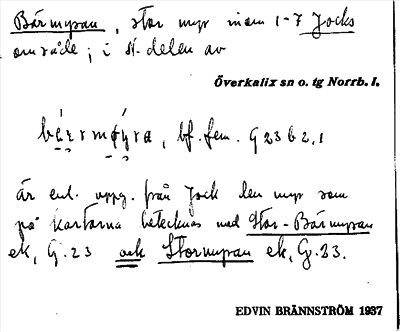 Bärmyran, stor myr inom 1-7 Jocks
område; i N. delen av
Överkalix sn o. tg Norrb. l.
bf. fem. G 23 b 2,1
är enl. uppg. från Jock den myr som
på kartorna betecknas med Stor-Bärmyran
ek, G. 23 och Stormyran ek, G. 33.
EDVIN BRÄNNSTRÖM 1937